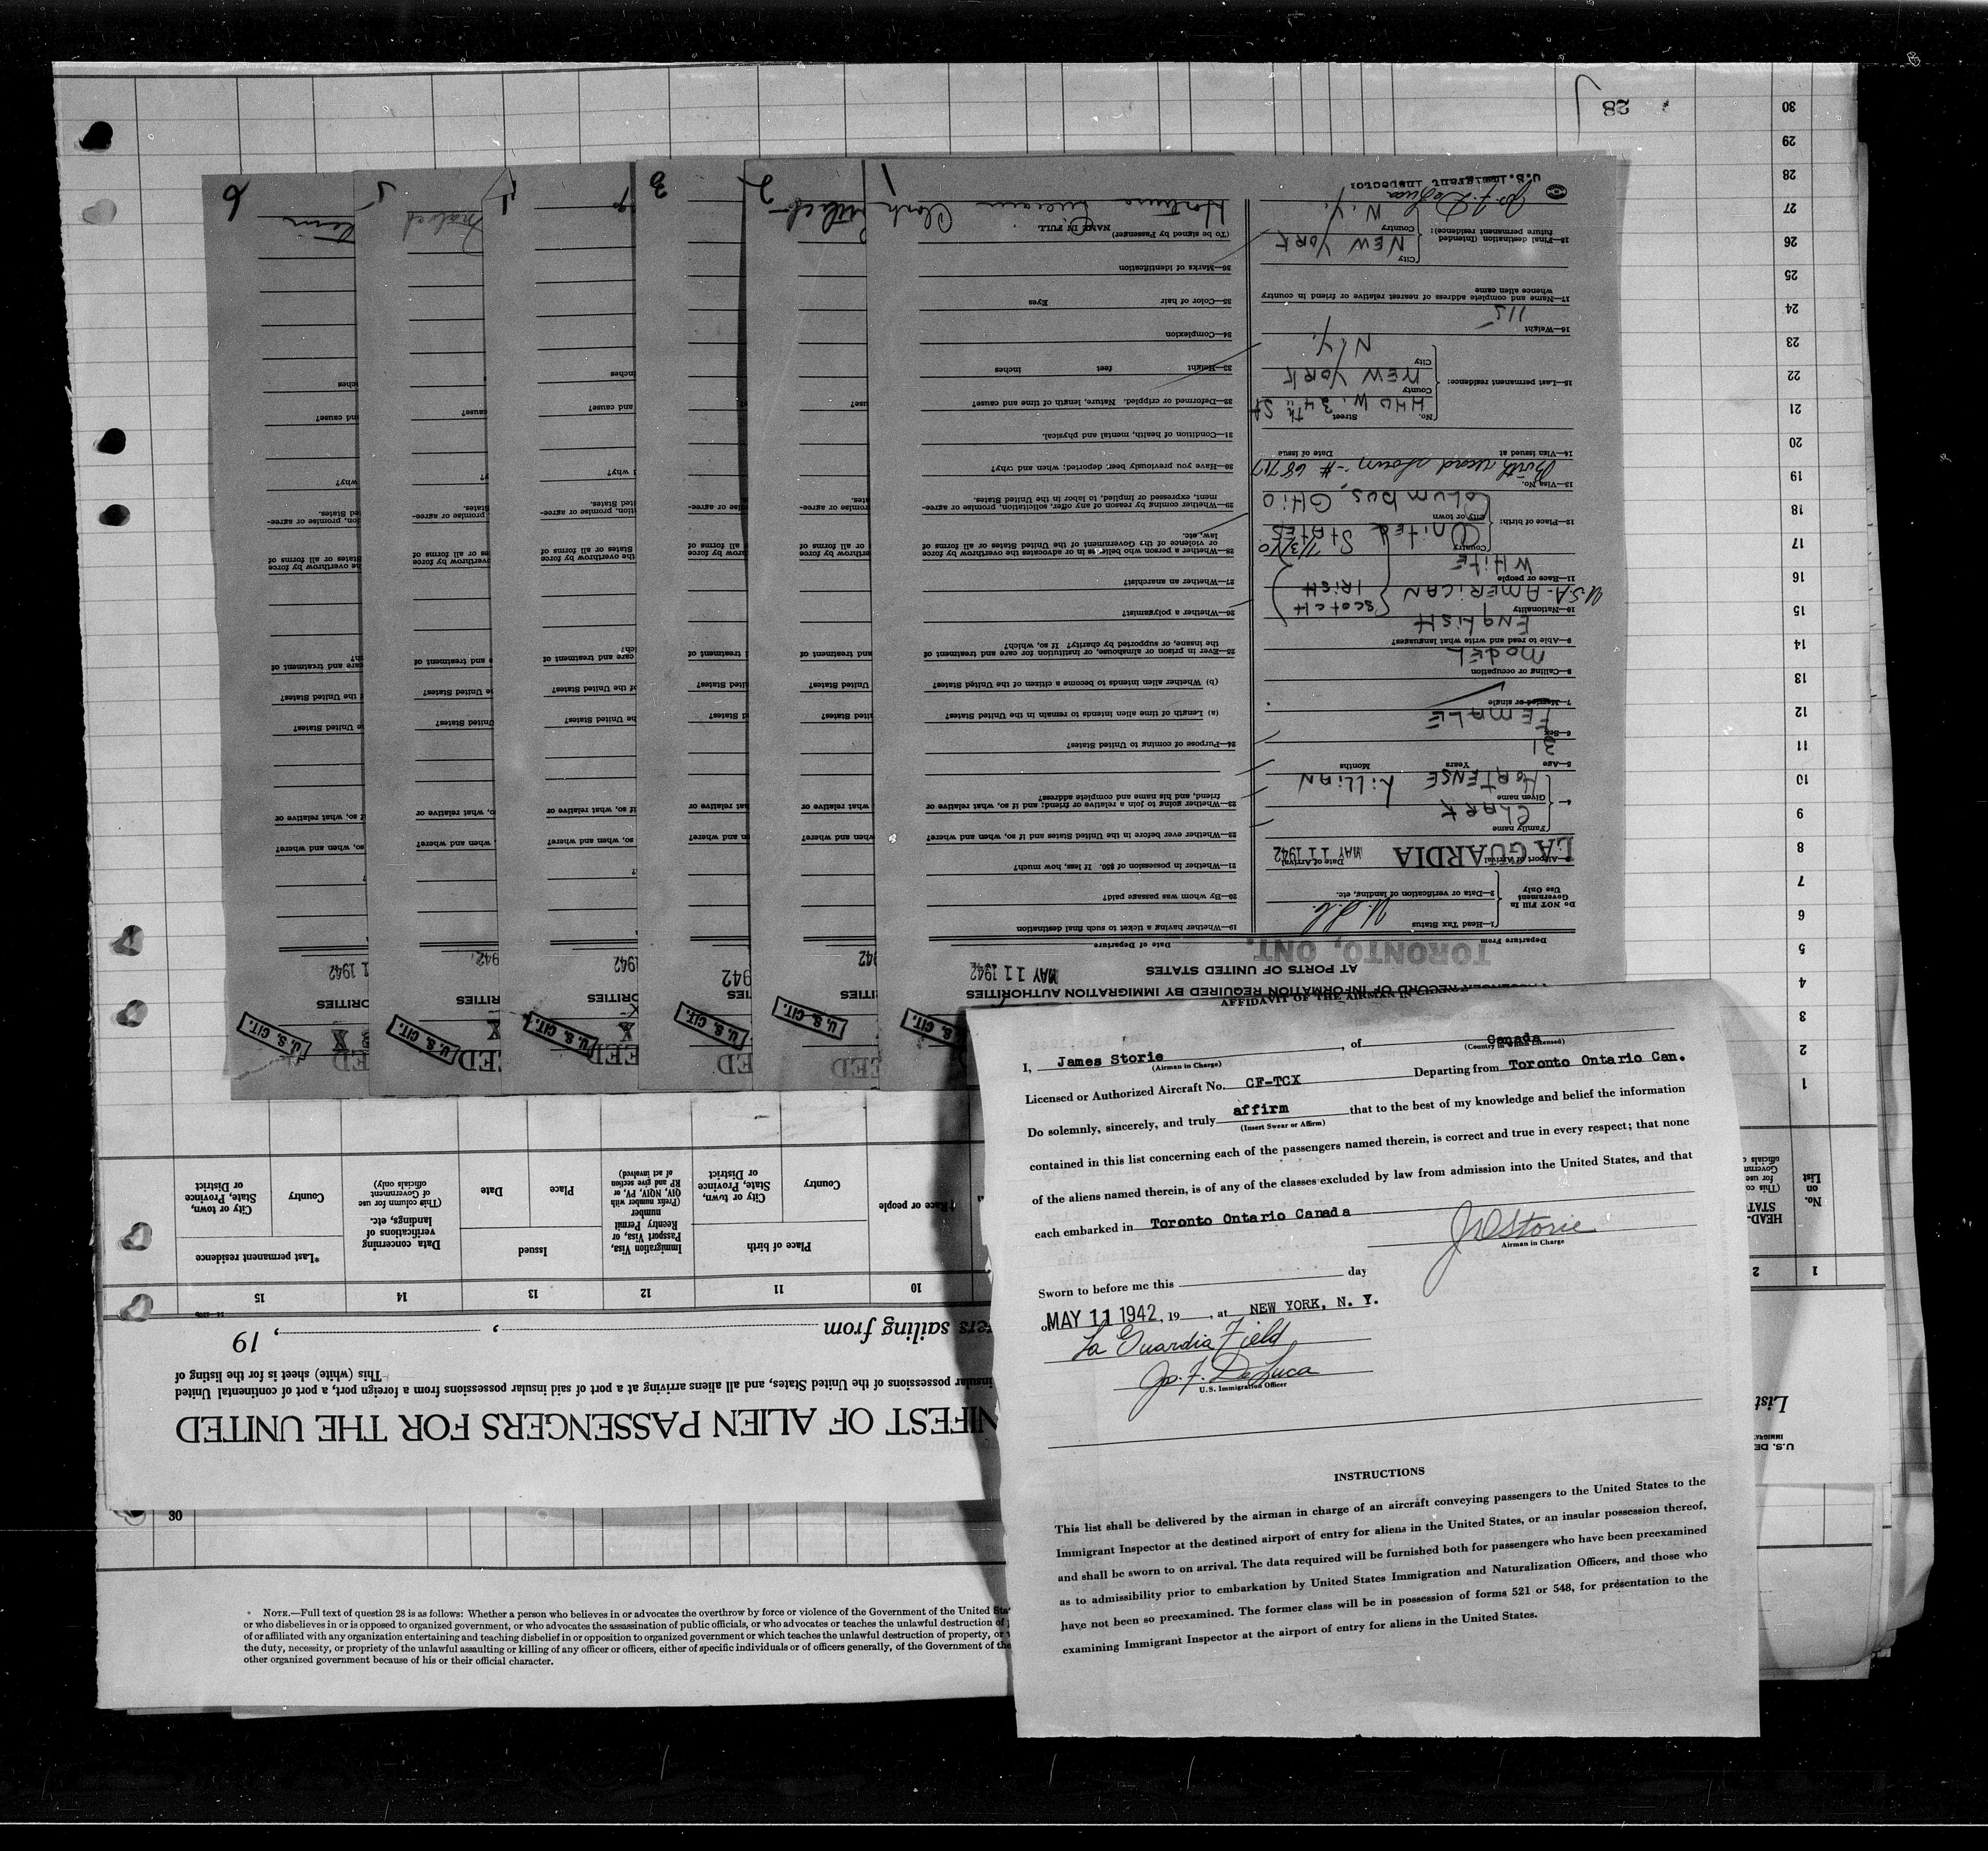 AFFIDAVIT OF THE AIRMAN IN
I, James Storie, of Canada
(Airman in Charge) (Country in Which Licensed)
Licensed or Authorized Aircraft No. CF-TCX Departing from Toronto Ontario Can.
Do solemnly, sincerely, and truly affirm that to the best of my knowledge and belief the information
(Insert Swear or Affirm)
contained in this list concerning each of the passengers named therein, is correct and true in every respect; that none
of the aliens named therein, is of any of the classes excluded by law from admission into the United States, and that
each embarked in Toronto Ontario Canada
J D Storie
Airman in Charge
Sworn to before me this day
of MAY 11 1942, 19 , at NEW YORK, N. Y.
La Guardia Field
Jos. F. DeLuca
U.S. Immigration Officer
INSTRUCTIONS
This list shall be delivered by the airman in charge of an aircraft conveying passengers to the United States to the
Immigrant Inspector at the destined airport of entry for aliens in the United States, or an insular possession thereof,
and shall be sworn to on arrival. The data required will be furnished both for passengers who have been preexamined
as to admissibility prior to embarkation by United States Immigration and Naturalization Officers, and those who
have not been so preexamined. The former class will be in possession of forms 521 or 548, for presentation to the
examining Immigrant Inspector at the airport of entry for aliens in the United States.
30
NOTE.—Full text of question 28 is as follows: Whether a person who believes in or advocates the overthrow by force or violence of the Government of the United
or who disbelieves in or is opposed to organized government, or who advocates the assassination of public officials, or who advocates or teaches the unlawful destruction of
of or affiliated with any organization entertaining and teaching disbelief in or opposition to organized government or which teaches the unlawful destruction of property, or
the duty, necessity, or propriety of the unlawful assaulting or killing of any officer or officers, either of specific individuals or of officers generally, of the Government of the
other organized government because of his or their official character.
List
NIFEST OF ALIEN PASSENGERS FOR THE UNITED
insular possessions of the United States, and all aliens arriving at a port of said insular possessions from a foreign port, a port of continental United
This (white) sheet is for the listing of
ers sailing from , , 19
1 2 10 11 12 13 14 15
No. on List
HEAD-
Race or people
Place of birth
Country
City or town, State, Province or District
Immigration Visa, Passport Visa, or Reentry Permit number
(Prefix number with QIV, NQIV, PV, or RP and give section of act involved)
Issued
Place
Date
Data concerning verifications of landings, etc.
(This column for use of Government officials only)
*Last permanent residence
Country
City or town, State, Province or District
1
2
3
4
5
6
7
8
9
10
11
12
13
14
15
16
17
18
19
20
21
22
23
24
25
26
27
28
29
30
28
U. S. CIT.
U. S. CIT.
U. S. CIT.
U. S. CIT.
U. S. CIT.
U. S. CIT.
RECORD OF INFORMATION REQUIRED BY IMMIGRATION AUTHORITIES
AT PORTS OF UNITED STATES
MAY 11 1942
TORONTO, ONT.
Departure From Date of Departure
Do NOT Fill In Government Use Only
1—Head Tax Status
2—Data or verification of landing, etc.
—Airport of Arrival LA GUARDIA Date of Arrival MAY 11 1942
4— Family name CLARK
Given name HORTENSE LILLIAN
5—Age Years 31 Months
6—Sex FEMALE
7—Married or single
8—Calling or occupation MODEL
9—Able to read and write what languages? ENGLISH
10—Nationality U.S.A-AMERICAN (SCOTCH IRISH)
11—Race or people WHITE
12—Place of birth: Country UNITED STATES 7/3/10
City or town COLUMBUS, OHIO
13—Visa No. Birth record shown - # 68717
14—Visa issued at Date of issue
15—Last permanent residence: No. 440 W. 34th St Street
County NEW YORK
City N.Y.
16—Weight 115
17—Name and complete address of nearest relative or friend in country whence alien came
18—Final destination (Intended future permanent residence): City NEW YORK
Country N.Y.
Jos. F. DeLuca
U.S. Immigrant Inspector
19—Whether having a ticket to such final destination
20—By whom was passage paid?
21—Whether in possession of $50. If less, how much?
22—Whether ever before in the United States and if so, when and where?
23—Whether going to join a relative or friend; and if so, what relative or friend, and his name and complete address?
24—Purpose of coming to United States?
(a) Length of time alien intends to remain in the United States?
(b) Whether alien intends to become a citizen of the United States?
25—Ever in prison or almshouse, or institution for care and treatment of the insane, or supported by charity? If so, which?
26—Whether a polygamist?
27—Whether an anarchist?
28—Whether a person who believes in or advocates the overthrow by force or violence of the Government of the United States or all forms of law, etc.
29—Whether coming by reason of any offer, solicitation, promise or agreement, expressed or implied, to labor in the United States.
30—Have you previously been deported; when and why?
31—Condition of health, mental and physical.
32—Deformed or crippled. Nature, length of time and cause?
33—Height feet inches
34—Complexion
35—Color of hair Eyes
36—Marks of identification
(To be signed by Passenger) NAME IN FULL
1
2
3
4
5
6